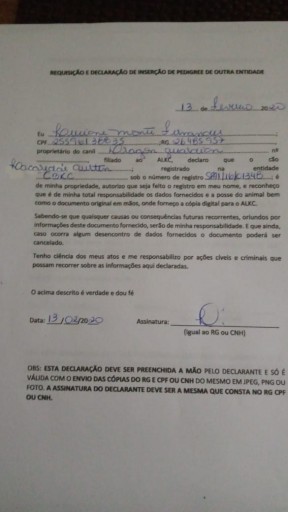 REQUISIÇÃO E DECLARAÇÃO DE INSERÇÃO DE PEDIGREE DE OUTRA ENTIDADE
13 de fevereiro 2020
Eu
CPF RG
proprietário do canil guardian nº
filiado ao ALKC declaro que o cão
registrado na entidade
sob o número de registro é
de minha propriedade, autorizo que seja feito o registro em meu nome, e reconheço
que é de minha total responsabilidade os dados fornecidos e a posse do animal bem
como o documento original em mãos, onde forneço a cópia digital para o ALKC.
Sabendo-se que quaisquer causas ou consequências futuras recorrentes, oriundos por
informações deste documento fornecido, serão de minha responsabilidade. E que ainda,
caso ocorra algum desencontro de dados fornecidos o documento poderá ser
cancelado.
Tenho ciência dos meus atos e me responsabilizo por ações cíveis e criminais que
possam recorrer sobre as informações aqui declaradas.
O acima descrito é verdade e dou fé
Data: 13/02/2020 Assinatura:
(igual ao RG ou CNH)
OBS: ESTA DECLARAÇÃO DEVE SER PREENCHIDA A MÃO PELO DECLARANTE E SÓ É
VÁLIDA COM O ENVIO DAS CÓPIAS DO RG E CPF OU CNH DO MESMO EM JPEG, PNG OU
FOTO. A ASSINATURA DO DECLARANTE DEVE SER A MESMA QUE CONSTA NO RG CPF
OU CNH.